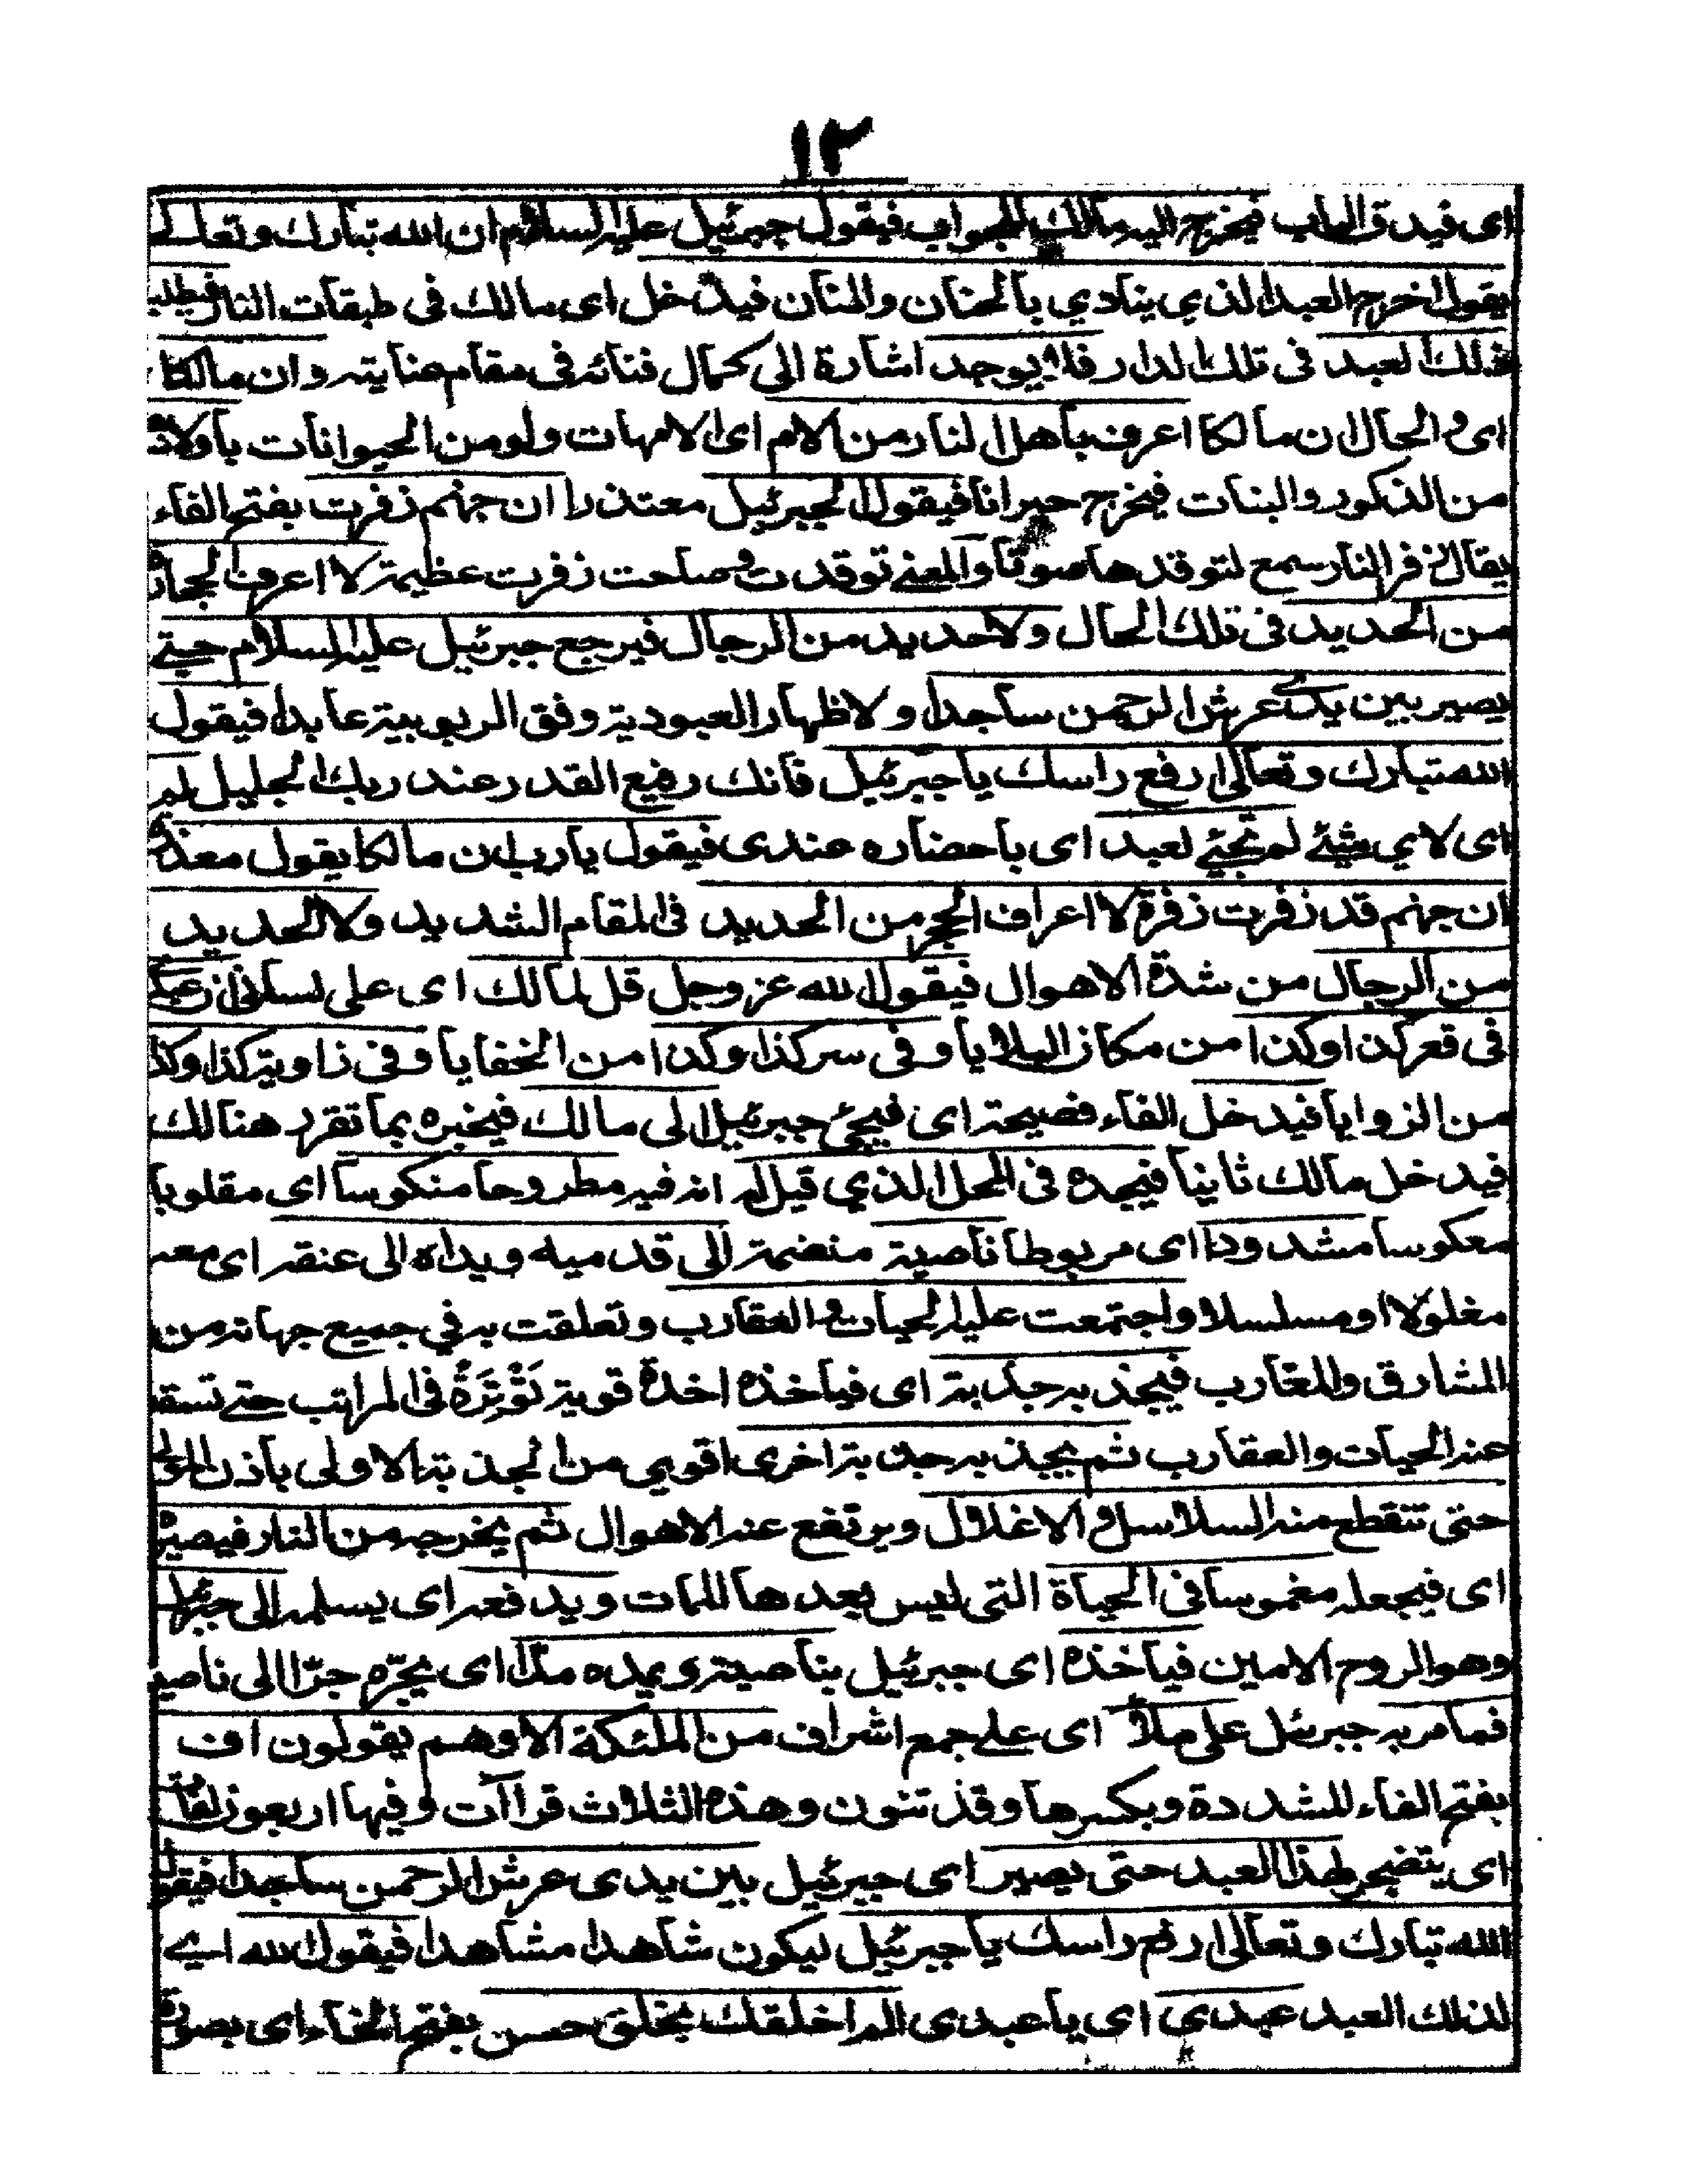 ١٢
اى فيدق الباب فيخرج اليه مالك للجواب فيقول جبرئيل عليه السلام ان الله تبارك وتعالى
يقول اخرج العبد الذي ينادي يا لحنان والمنان فيدخل اى مالك فى طبقات النار فيطلب
ذلك العبد فى تلك الدار فلا يوجد اشارة الى كمال فنائه فى مقام عنايته وان مالكا
اى والحال ان مالكا اعرف باهل النار من الام اى الامهات ولو من الحيوانات باولادها
من الذكور والبنات فيخرج حيرانا فيقول لجبرئيل معتذرا ان جهنم زفرت بفتح الفاء
يقال زفر النار سمع لتوقدها صوتا والمعنے توقدت وصاحت زفرت عظيمة لا اعرف الحجارة
من الحديد فى تلك الحال ولا الحديد من الرجال فيرجع جبرئيل عليه السلام حتے
يصير بين يدے عرش الرحمن ساجدا ولاظهار العبودية وفق الربوبية عابدا فيقول
الله تبارك وتعالى ارفع راسك يا جبرئيل فانك رفيع القدر عند ربك الجليل لم
اى لاي شيئے لم تجئے لعبد اى باحضاره عندى فيقول يا رب ان مالكا يقول معذرة
ان جهنم قد زفرت زفرة لا اعراف الحجر من الحديد فى المقام الشديد ولا الحديد
من الرجال من شدة الاهوال فيقول الله عز وجل قل لمالك اى على لسانى ان عبدے
فى قعر كذا وكذا من مكان البلايا وفى سر كذا وكذا من الخفايا وفى زاوية كذا وكذا
من الزوايا فيدخل الفاء فصيحة اى فيجئ جبرئيل الى مالك فيخبره بما تقرر هنالك
فيدخل مالك ثانيا فيجده فى المحل الذي قيل له انه فيه مطروحا منكوسا اى مقلوبا
معكوسا مشدودا اى مربوطا ناصيته منضمة الى قدميه ويداه الى عنقه اى معه
مغلولا او مسلسلا واجتمعت عليه الحيات والعقارب وتعلقت به في جميع جهاته من
المشارق والمغارب فيجذبه جذبة اى فياخذه اخذة قوية تؤثرة فى المراتب حتے تسقط
عنه الحيات والعقارب ثم يجذبه جذبة اخرى اقوي من الجذبة الاولى باذن المولى
حتى تنقطع منه السلاسل والاغلال ويرتفع عنه الاهوال ثم يخرجه من النار فيصيره
اى فيجعله مغموسا فى الحياة التى ليس بعدها الممات ويدفعه اى يسلمه الى جبرئيل
وهو الروح الامين فياخذه اى جبرئيل بناصيته ويمده مدا اى يجره جرا الى ناصيه
فما مر به جبرئيل على ملأ اى علے جمع اشراف من الملئكة الا وهم يقولون اف
بفتح الفاء المشددة وبكسرها وقد تنون وهذه الثلاث قراآت وفيها اربعون لغات
اى يتضجر لهذا العبد حتى يصير اى جبرئيل بين يدى عرش الرحمن ساجدا فيقول
الله تبارك وتعالى ارفع راسك يا جبرئيل ليكون شاهدا مشاهدا فيقول الله اے
لذلك العبد عبدي اى يا عبدى الم اخلقك بخلق حسن بفتح الخاء اى بصورة